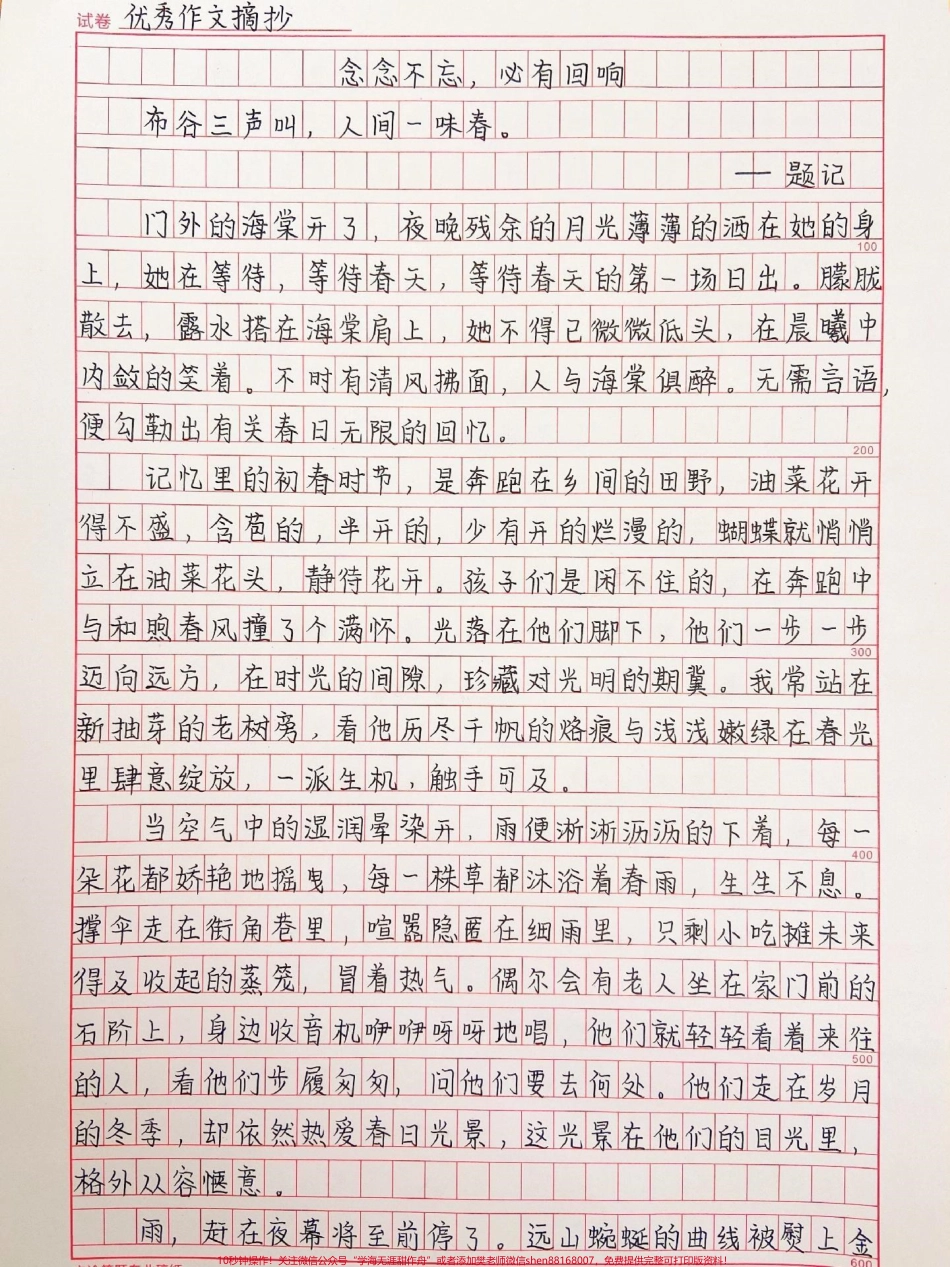 试卷 优秀作文摘抄
念念不忘，必有回响
布谷三声叫，人间一味春。
— 题记
门外的海棠开了，夜晚残余的月光薄薄的洒在她的身
100
上，她在等待，等待春天，等待春天的第一场日出。朦胧
散去，露水搭在海棠肩上，她不得已微微低头，在晨曦中
内敛的笑着。不时有清风拂面，人与海棠俱醉。无需言语，
便勾勒出有关春日无限的回忆。
200
记忆里的初春时节，是奔跑在乡间的田野，油菜花开
得不盛，含苞的，半开的，少有开的烂漫的，蝴蝶就悄悄
立在油菜花头，静待花开。孩子们是闲不住的，在奔跑中
与和煦春风撞了个满怀。光落在他们脚下，他们一步一步
300
迈向远方，在时光的间隙，珍藏对光明的期冀。我常站在
新抽芽的老树旁，看他历尽千帆的烙痕与浅浅嫩绿在春光
里肆意绽放，一派生机，触手可及。
当空气中的湿润晕染开，雨便淅淅沥沥的下着，每一
400
朵花都娇艳地摇曳，每一株草都沐浴着春雨，生生不息。
撑伞走在街角巷里，喧嚣隐匿在细雨里，只剩小吃摊未来
得及收起的蒸笼，冒着热气。偶尔会有老人坐在家门前的
石阶上，身边收音机咿咿呀呀地唱，他们就轻轻看着来往
500
的人，看他们步履匆匆，问他们要去何处。他们走在岁月
的冬季，却依然热爱春日光景，这光景在他们的目光里，
格外从容惬意。
雨，赶在夜幕将至前停了。远山蜿蜒的曲线被熨上金
600
10秒钟操作！关注微信公众号“学海无涯甜作舟”或者添加樊老师微信shen88168007，免费提供完整可打印版资料！